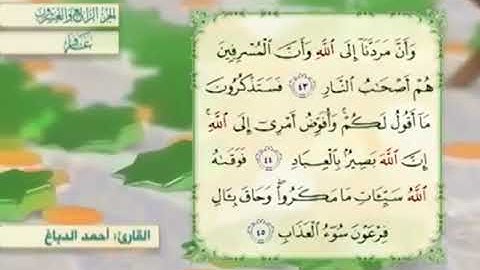 الجزء الرابع والعشرون
غافر
وَأَنَّ مَرَدَّنَآ إِلَى ٱللَّهِ وَأَنَّ ٱلْمُسْرِفِينَ
هُمْ أَصْحَٰبُ ٱلنَّارِ ٤٣ فَسَتَذْكُرُونَ
مَآ أَقُولُ لَكُمْ ۚ وَأُفَوِّضُ أَمْرِىٓ إِلَى ٱللَّهِ ۚ
إِنَّ ٱللَّهَ بَصِيرٌۢ بِٱلْعِبَادِ ٤٤ فَوَقَىٰهُ
ٱللَّهُ سَيِّـَٔاتِ مَا مَكَرُوا۟ ۖ وَحَاقَ بِـَٔالِ
فِرْعَوْنَ سُوٓءُ ٱلْعَذَابِ ٤٥
القارئ: أحمد الدباغ